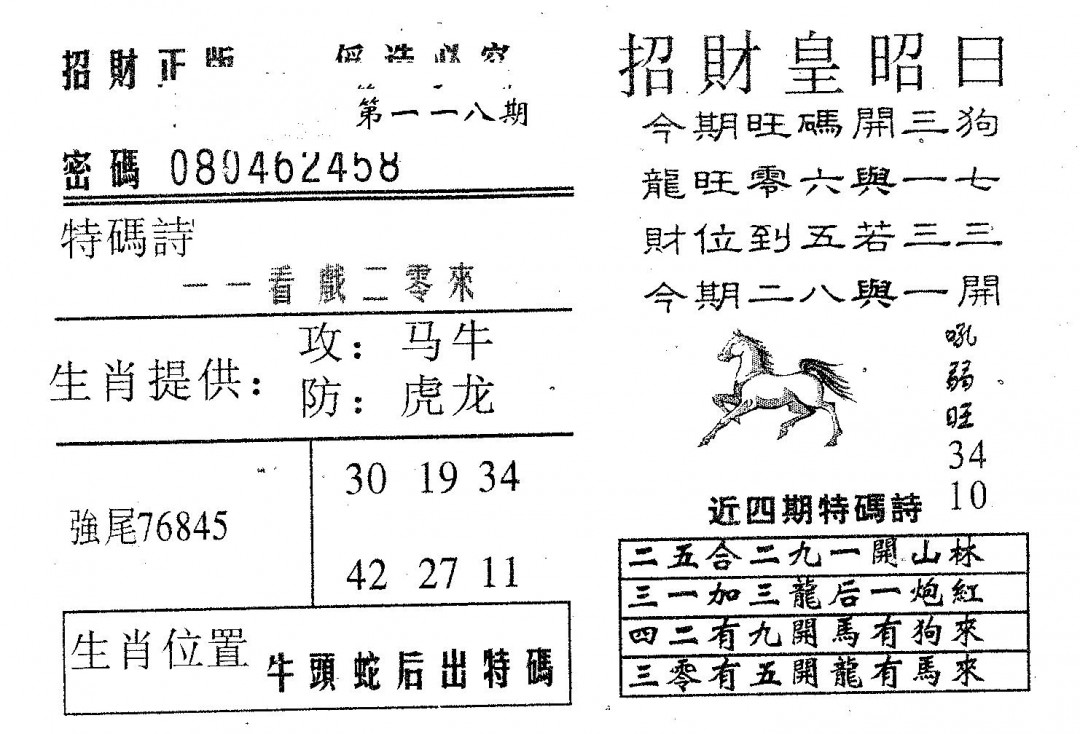 招財正版 假造必究
第一一八期
密碼 080462458
特碼詩
一一看戲二零來
生肖提供：
攻：马牛
防：虎龙
強尾76845
30 19 34
42 27 11
生肖位置 牛頭蛇后出特碼
招財皇昭日
今期旺碼開三狗
龍旺零六與一七
財位到五若三三
今期二八與一開
吼
弱
旺
34
10
近四期特碼詩
二五合二九一開山林
三一加三龍后一炮紅
四二有九開馬有狗來
三零有五開龍有馬來